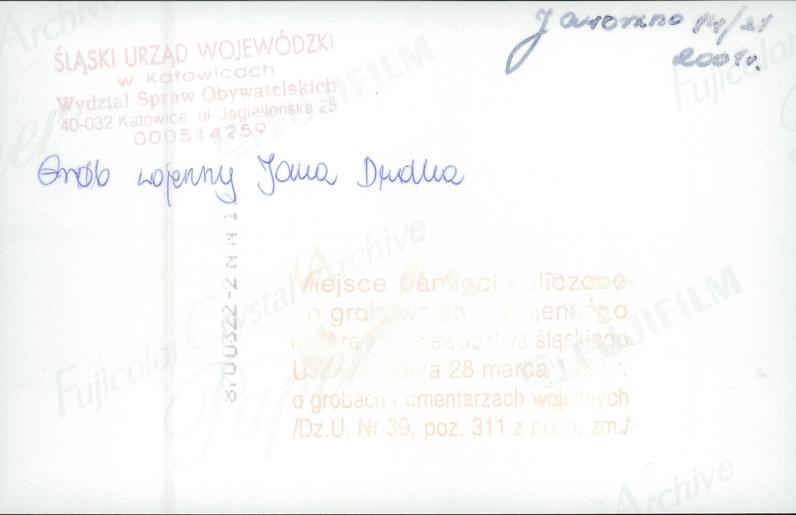 Jaworzno 14/21
2001r.
ŚLĄSKI URZĄD WOJEWÓDZKI
w Katowicach
Wydział Spraw Obywatelskich
40-032 Katowice ul. Jagiellońska 25
000514259
Grób wojenny Jana Dudka
8700322-2 N N 1
Miejsce pamięci zaliczono
do grobownictwa wojennego
województwa śląskiego
28 marca
o grobach i cmentarzach wojennych
/Dz.U. Nr 39, poz. 311 z późn. zm./
Fujicolor Crystal Archive
Paper
FUJIFILM
FUJIFILM
Archive
Fujicolor
Archive